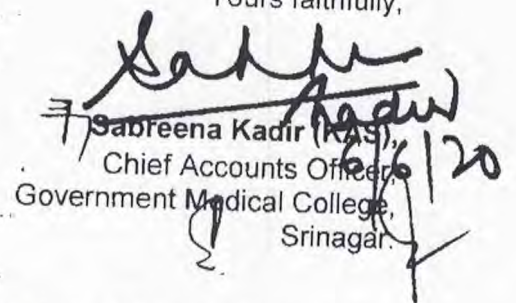 Yours faithfully,
Sabreena Kadir (KAS),
Chief Accounts Officer,
Government Medical College,
Srinagar.
6/6/20